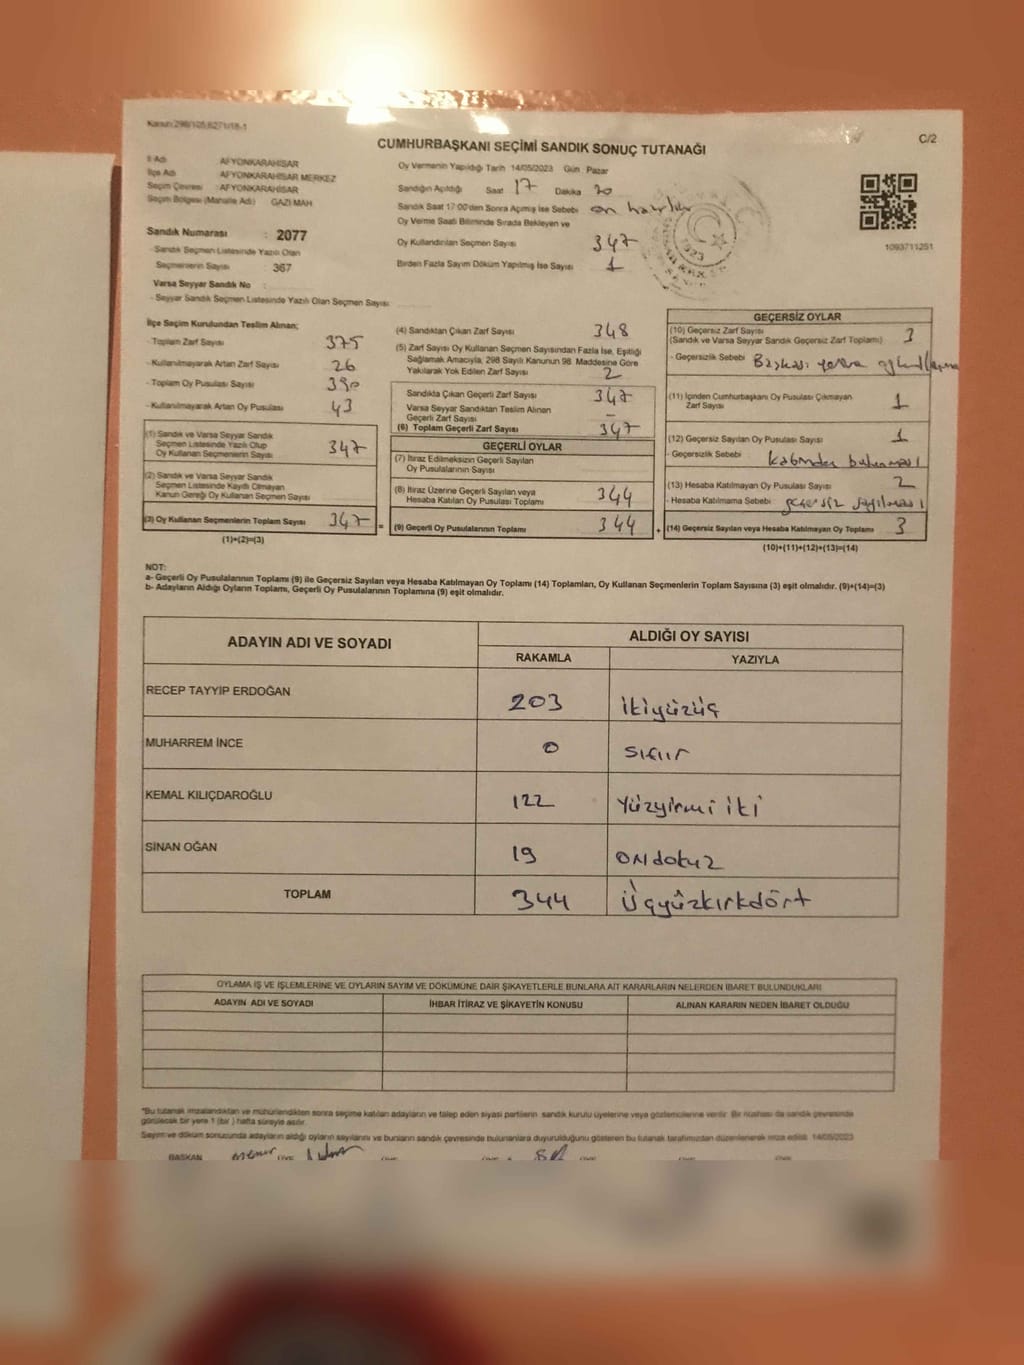 Kanun:298/105,6271/18-1
C/2
CUMHURBAŞKANI SEÇİMİ SANDIK SONUÇ TUTANAĞI
İl Adı AFYONKARAHİSAR
İlçe Adı AFYONKARAHİSAR MERKEZ
Seçim Çevresi : AFYONKARAHİSAR
Seçim Bölgesi (Mahalle Adı) GAZİ MAH
Sandık Numarası : 2077
- Sandık Seçmen Listesinde Yazılı Olan
Seçmenlerin Sayısı 367
Varsa Seyyar Sandık No :
- Seyyar Sandık Seçmen Listesinde Yazılı Olan Seçmen Sayısı
Oy Vermenin Yapıldığı Tarih 14/05/2023 Gün Pazar
Sandığın Açıldığı Saat 17 Dakika 20
Sandık Saat 17:00'den Sonra Açılmış İse Sebebi ön hazırlık
Oy Verme Saati Bitiminde Sırada Bekleyen ve
Oy Kullandırılan Seçmen Sayısı 347
Birden Fazla Sayım Döküm Yapılmış İse Sayısı 1
1923
1093711251
İlçe Seçim Kurulundan Teslim Alınan;
- Toplam Zarf Sayısı 375
- Kullanılmayarak Artan Zarf Sayısı 26
- Toplam Oy Pusulası Sayısı 390
- Kullanılmayarak Artan Oy Pusulası 43
(1) Sandık ve Varsa Seyyar Sandık
Seçmen Listesinde Yazılı Olup
Oy Kullanan Seçmenlerin Sayısı 347
(2) Sandık ve Varsa Seyyar Sandık
Seçmen Listesinde Kaydı Olmayan
Kanun Gereği Oy Kullanan Seçmen Sayısı
(3) Oy Kullanan Seçmenlerin Toplam Sayısı 347
(1)+(2)=(3)
(4) Sandıktan Çıkan Zarf Sayısı 348
(5) Zarf Sayısı Oy Kullanan Seçmen Sayısından Fazla İse, Eşitliği
Sağlamak Amacıyla, 298 Sayılı Kanunun 98. Maddesine Göre
Yakılarak Yok Edilen Zarf Sayısı 2
Sandıkta Çıkan Geçerli Zarf Sayısı 347
Varsa Seyyar Sandıktan Teslim Alınan
Geçerli Zarf Sayısı -
(6) Toplam Geçerli Zarf Sayısı 347
GEÇERLİ OYLAR
(7) İtiraz Edilmeksizin Geçerli Sayılan
Oy Pusulalarının Sayısı
(8) İtiraz Üzerine Geçerli Sayılan veya
Hesaba Katılan Oy Pusulası Toplamı 344
= (9) Geçerli Oy Pusulalarının Toplamı 344
GEÇERSİZ OYLAR
(10) Geçersiz Zarf Sayısı 3
(Sandık ve Varsa Seyyar Sandık Geçersiz Zarf Toplamı)
- Geçersizlik Sebebi Başkası yerine
(11) İçinden Cumhurbaşkanı Oy Pusulası Çıkmayan
Zarf Sayısı 1
(12) Geçersiz Sayılan Oy Pusulası Sayısı 1
- Geçersizlik Sebebi kabinden bulunması
(13) Hesaba Katılmayan Oy Pusulası Sayısı 2
- Hesaba Katılmama Sebebi geçersiz sayılması
+ (14) Geçersiz Sayılan veya Hesaba Katılmayan Oy Toplamı 3
(10)+(11)+(12)+(13)=(14)
NOT:
a- Geçerli Oy Pusulalarının Toplamı (9) ile Geçersiz Sayılan veya Hesaba Katılmayan Oy Toplamı (14) Toplamları, Oy Kullanan Seçmenlerin Toplam Sayısına (3) eşit olmalıdır. (9)+(14)=(3)
b- Adayların Aldığı Oyların Toplamı, Geçerli Oy Pusulalarının Toplamına (9) eşit olmalıdır.
ADAYIN ADI VE SOYADI ALDIĞI OY SAYISI
RAKAMLA YAZIYLA
RECEP TAYYİP ERDOĞAN 203 ikiyüzüç
MUHARREM İNCE 0 sıfır
KEMAL KILIÇDAROĞLU 122 Yüzyirmi iki
SİNAN OĞAN 19 ondokuz
TOPLAM 344 Üçyüzkırkdört
OYLAMA İŞ VE İŞLEMLERİNE VE OYLARIN SAYIM VE DÖKÜMÜNE DAİR ŞİKAYETLERLE BUNLARA AİT KARARLARIN NELERDEN İBARET BULUNDUKLARI
ADAYIN ADI VE SOYADI İHBAR İTİRAZ VE ŞİKAYETİN KONUSU ALINAN KARARIN NEDEN İBARET OLDUĞU
*Bu tutanak imzalandıktan ve mühürlendikten sonra seçime katılan adayların ve talep eden siyasi partilerin sandık kurulu üyelerine veya gözlemcilerine verilir. Bir nüshası da sandık çevresinde
görülecek bir yere 1 (bir ) hafta süreyle asılır.
Sayım ve döküm sonucunda adayların aldığı oyların sayılarını ve bunların sandık çevresinde bulunanlara duyurulduğunu gösteren bu tutanak tarafımızdan düzenlenerek imza edildi. 14/05/2023
BAŞKAN